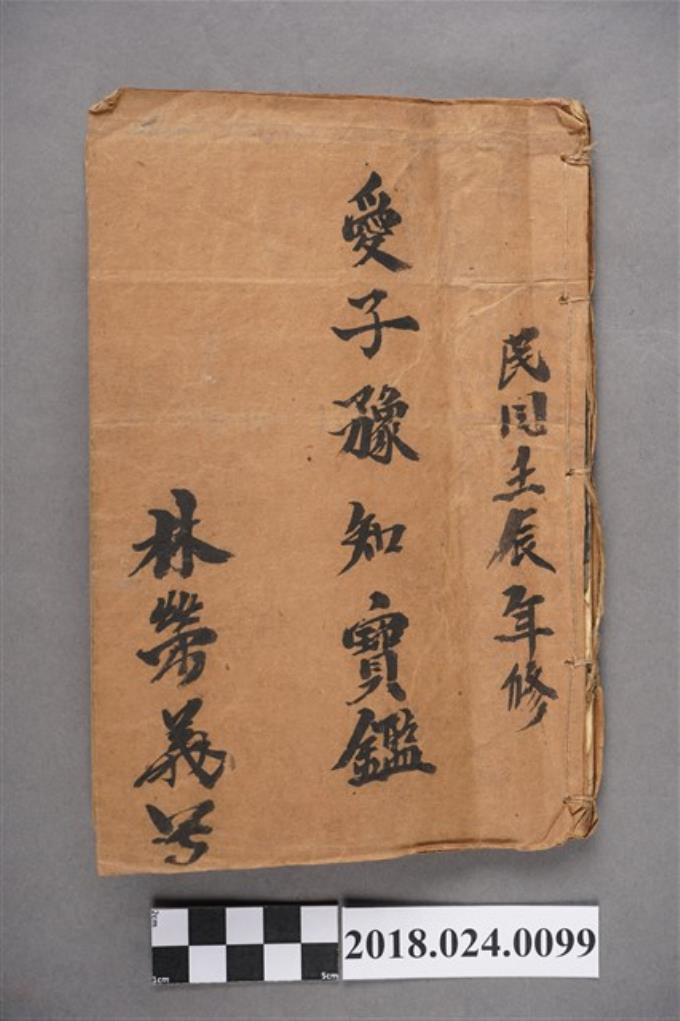 民国壬辰年修
愛子豫知寶鑑
林榮義号
2cm
1cm
5cm
2018.024.0099